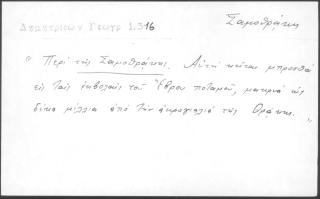 Δημητριέων Γεωγρ 1.316
Σαμοθράκη
" Περί τῆς Σαμοθράκης. Αὐτή κεῖται μπροστά
εἰς ταῖς ἐκβολαῖς τοῦ Ἕβρου ποταμοῦ, μακρυά ὡς
δέκα μίλλια ἀπό τήν ἀκρογιαλιά τῆς Θράκης. "